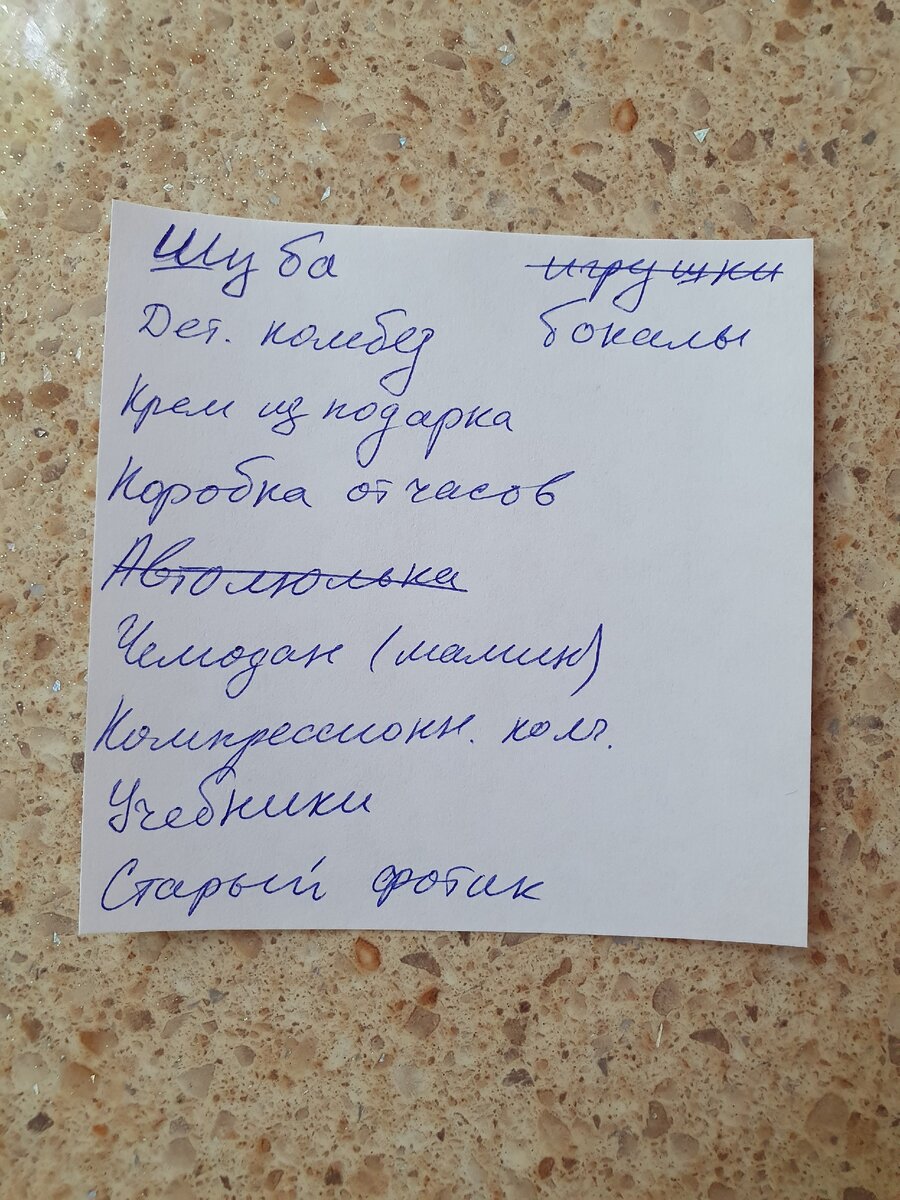 Шуба
игрушки
Дет. комбез
бокалы
Крем из подарка
Коробка от часов
Автолюлька
Чемодан (мамин)
Компрессионн. колг.
Учебники
Старый фотик